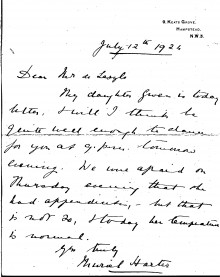 9, Keats Grove,
Hampstead,
N.W.3.
July 12th 1926
Dear Mr de
My daughter Gwen is today
better, & will I think be
quite well enough to dance
for you at 9. p.m. tomorrow
evening. We was afraid on
Thursday evening that she
had appendicitis, - but that
is not so, & today her temperature
is normal.
Yrs truly
Muriel